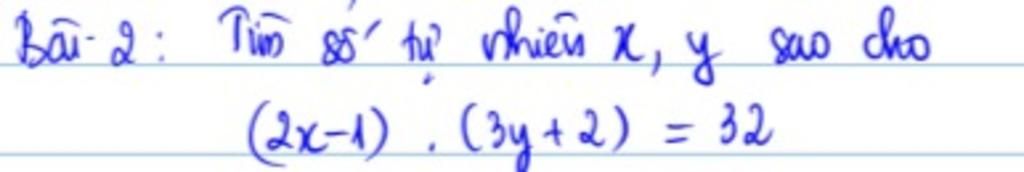 Bài 2: Tìm số tự nhiên x, y sao cho
(2x-1) . (3y+2) = 32